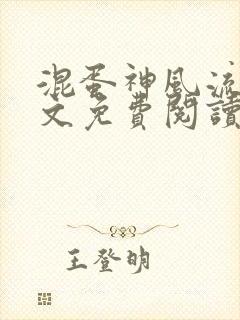 混蛋神風流
文免費閱讀
王登明